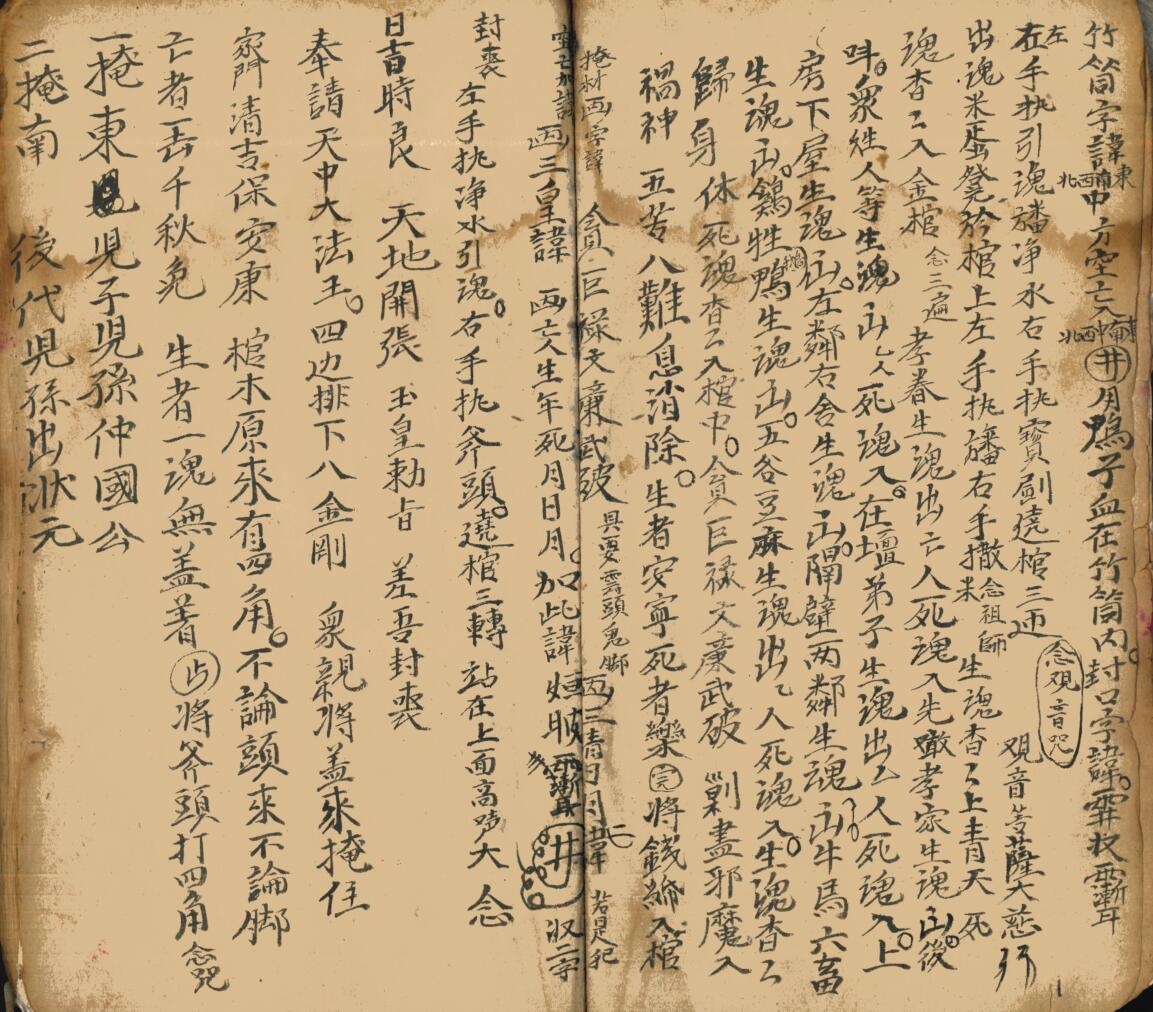 竹筒字諱東南西北中方空亡入東南中西北井月鴨子血在竹筒内封口字諱
在左手执引魂旛净水右手执寳劍遶棺三 念观音咒 观音菩薩大慈
出魂米 棺上左手执旛右手撒米念祖師 生魂杳〻上青天 死
魂杳〻入金棺 念三遍 孝眷生魂出 亡人死魂入 先 孝家生魂出 後
众姓人等生魂出 亡人死魂入 在壇弟子生魂出 亡人死魂入 上
房下屋生魂出 左鄰右舍生魂出 隔壁两鄰生魂出 牛馬六畜
生魂出 鷄牲鴨 生魂出 五谷豆麻生魂出 亡人死魂入 生魂杳〻
歸身休 死魂杳〻入棺中 貪巨禄文廉武破 剿盡邪魔入
禍神 五苦八難息消除 生者安寧死者樂 完 将錢 入棺
貪巨禄文廉武破 具要雲頭鬼脚 画三清日月諱 若是犯
掩材画字諱
空亡加諱 画三皇諱 画亡人生年死月日月 加此諱 井 収二字
封喪 左手执净水引魂 右手执斧頭 遶棺三轉 站在上面高 大 念
日吉時良 天地開張 玉皇勅旨 差吾封喪
奉請天中大法王 四边排下八金剛 衆親将盖來掩住
家門清吉保安康 棺木原來有四角 不論頭來不論脚
亡者一去千秋 生者一魂無盖着 占 将斧頭打四角 念咒
一掩東 児子児孫仲國公
二掩南 後代児孫出状元